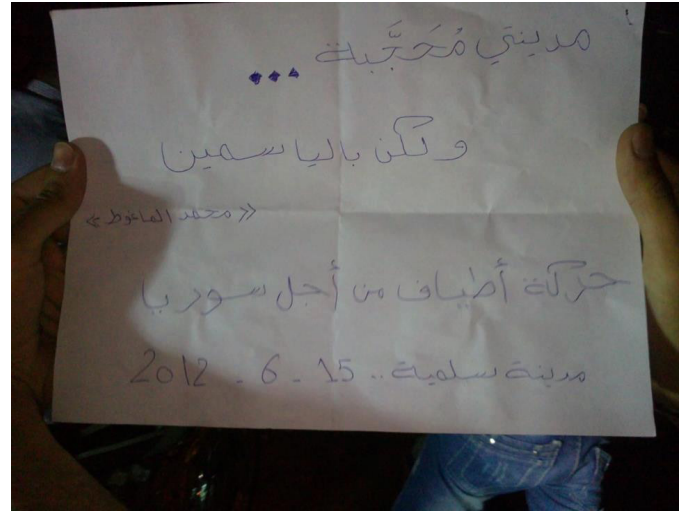 مدينتي مُحَجَّبة ...
ولكن بالياسمين
« محمد الماغوط »
حركة أطياف من أجل سوريا
مدينة سلمية .. 15 - 6 - 2012